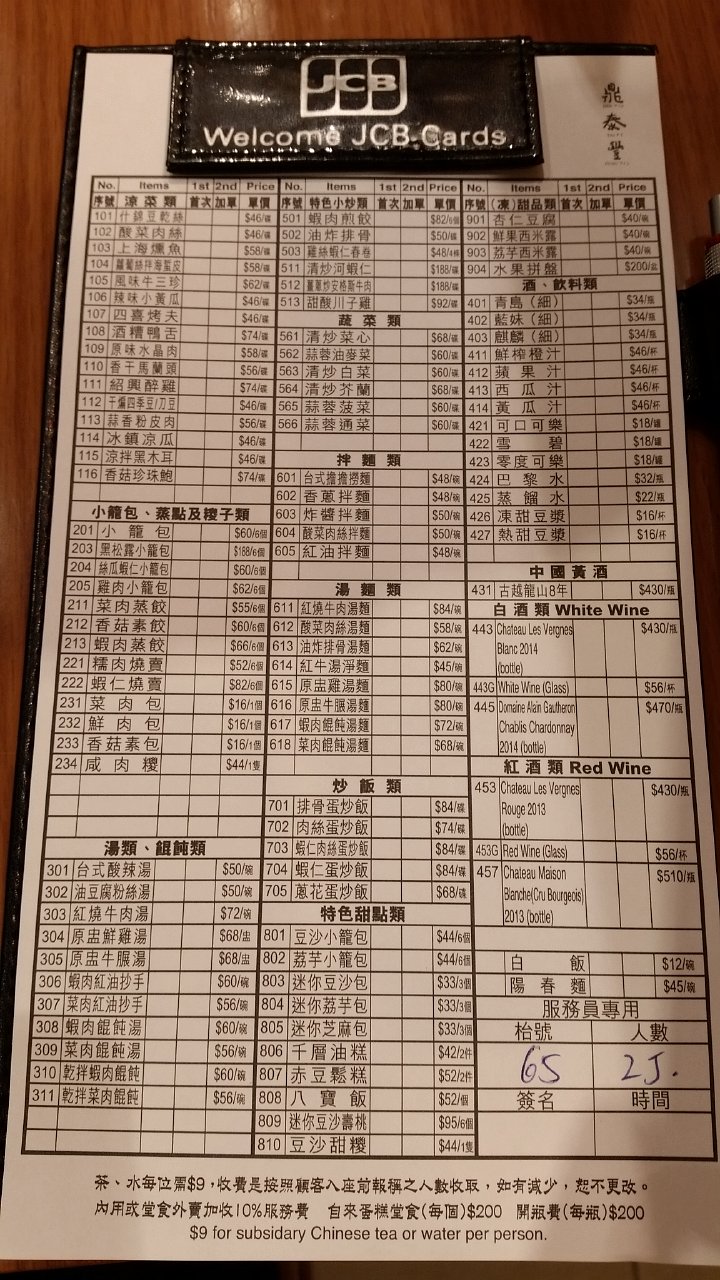 JCB
Welcome JCB Cards
鼎泰豐
No. Items 1st 2nd Price
序號 涼菜類 首次 加單 單價
101 什錦豆乾絲 $46/碟
102 酸菜肉絲 $46/碟
103 上海燻魚 $58/碟
104 蘿蔔絲拌海蜇皮 $58/碟
105 風味牛三珍 $62/碟
106 辣味小黃瓜 $46/碟
107 四喜烤夫 $46/碟
108 酒糟鴨舌 $74/碟
109 原味水晶肉 $58/碟
110 香干馬蘭頭 $56/碟
111 紹興醉雞 $74/碟
112 干煸四季豆/刀豆 $46/碟
113 蒜香粉皮肉 $56/碟
114 冰鎮涼瓜 $46/碟
115 涼拌黑木耳 $46/碟
116 香菇珍珠鮑 $74/碟
小籠包、蒸點及糉子類
201 小籠包 $60/6個
203 黑松露小籠包 $188/6個
204 絲瓜蝦仁小籠包 $60/6個
205 雞肉小籠包 $62/6個
211 菜肉蒸餃 $55/6個
212 香菇素餃 $60/6個
213 蝦肉蒸餃 $66/6個
221 糯肉燒賣 $52/6個
222 蝦仁燒賣 $82/6個
231 菜肉包 $16/1個
232 鮮肉包 $16/1個
233 香菇素包 $16/1個
234 咸肉糉 $44/1隻
湯類、餛飩類
301 台式酸辣湯 $50/碗
302 油豆腐粉絲湯 $50/碗
303 紅燒牛肉湯 $72/碗
304 原盅鮮雞湯 $68/盅
305 原盅牛腒湯 $68/盅
306 蝦肉紅油抄手 $60/碗
307 菜肉紅油抄手 $56/碗
308 蝦肉餛飩湯 $60/碗
309 菜肉餛飩湯 $56/碗
310 乾拌蝦肉餛飩 $60/碗
311 乾拌菜肉餛飩 $56/碗
No. Items 1st 2nd Price
序號 特色小炒類 首次 加單 單價
501 蝦肉煎餃 $82/6個
502 油炸排骨 $50/碟
503 雞絲蝦仁春卷 $48/4條
511 清炒河蝦仁 $188/碟
512 薑蔥炒安格斯牛肉 $188/碟
513 甜酸川子雞 $92/碟
蔬菜類
561 清炒菜心 $68/碟
562 蒜蓉油麥菜 $60/碟
563 清炒白菜 $60/碟
564 清炒芥蘭 $68/碟
565 蒜蓉菠菜 $60/碟
566 蒜蓉通菜 $60/碟
拌麵類
601 台式擔擔撈麵 $48/碗
602 香蔥拌麵 $48/碗
603 炸醬拌麵 $50/碗
604 酸菜肉絲拌麵 $50/碗
605 紅油拌麵 $48/碗
湯麵類
611 紅燒牛肉湯麵 $84/碗
612 酸菜肉絲湯麵 $58/碗
613 油炸排骨湯麵 $62/碗
614 紅牛湯淨麵 $45/碗
615 原盅雞湯麵 $80/碗
616 原盅牛腒湯麵 $80/碗
617 蝦肉餛飩湯麵 $72/碗
618 菜肉餛飩湯麵 $68/碗
炒飯類
701 排骨蛋炒飯 $84/碟
702 肉絲蛋炒飯 $74/碟
703 蝦仁肉絲蛋炒飯 $84/碟
704 蝦仁蛋炒飯 $84/碟
705 蔥花蛋炒飯 $68/碟
特色甜點類
801 豆沙小籠包 $44/6個
802 荔芋小籠包 $44/6個
803 迷你豆沙包 $33/3個
804 迷你荔芋包 $33/3個
805 迷你芝麻包 $33/3個
806 千層油糕 $42/2件
807 赤豆鬆糕 $52/2件
808 八寶飯 $52/個
809 迷你豆沙壽桃 $95/6個
810 豆沙甜糉 $44/1隻
No. Items 1st 2nd Price
序號 (凍)甜品類 首次 加單 單價
901 杏仁豆腐 $40/碗
902 鮮果西米露 $40/碗
903 荔芋西米露 $40/碗
904 水果拼盤 $200/盆
酒、飲料類
401 青島(細) $34/瓶
402 藍妹(細) $34/瓶
403 麒麟(細) $34/瓶
411 鮮榨橙汁 $46/杯
412 蘋果汁 $46/杯
413 西瓜汁 $46/杯
414 黃瓜汁 $46/杯
421 可口可樂 $18/罐
422 雪碧 $18/罐
423 零度可樂 $18/罐
424 巴黎水 $32/瓶
425 蒸餾水 $22/瓶
426 凍甜豆漿 $16/杯
427 熱甜豆漿 $16/杯
中國黃酒
431 古越龍山8年 $430/瓶
白酒類 White Wine
443 Chateau Les Vergnes $430/瓶
Blanc 2014
(bottle)
443G White Wine (Glass) $56/杯
445 Domaine Alain Gautheron $470/瓶
Chablis Chardonnay
2014 (bottle)
紅酒類 Red Wine
453 Chateau Les Vergnes $430/瓶
Rouge 2013
(bottle)
453G Red Wine (Glass) $56/杯
457 Chateau Maison $510/瓶
Blanche(Cru Bourgeois)
2013 (bottle)
白飯 $12/碗
陽春麵 $45/碗
服務員專用
枱號 人數
65 2J.
簽名 時間
茶、水每位需$9，收費是按照顧客入座前報稱之人數收取，如有減少，恕不更改。
內用或堂食外賣加收10%服務費 自來蛋糕堂食(每個)$200 開瓶費(每瓶)$200
$9 for subsidary Chinese tea or water per person.